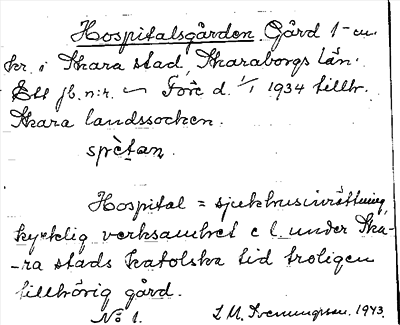 Hospitalsgården. Gård 1-en.
kr. i Skara stad, Skaraborgs län.
Ett jb. n:r. — Före d. 1/1 1934 tillh.
Skara landssocken.
spètan.
Hospital = sjukhusinrättning,
kyrklig verksamhet e l under Ska-
-ra stads katolska tid troligen
tillhörig gård.
No 1. I. M. 1943.